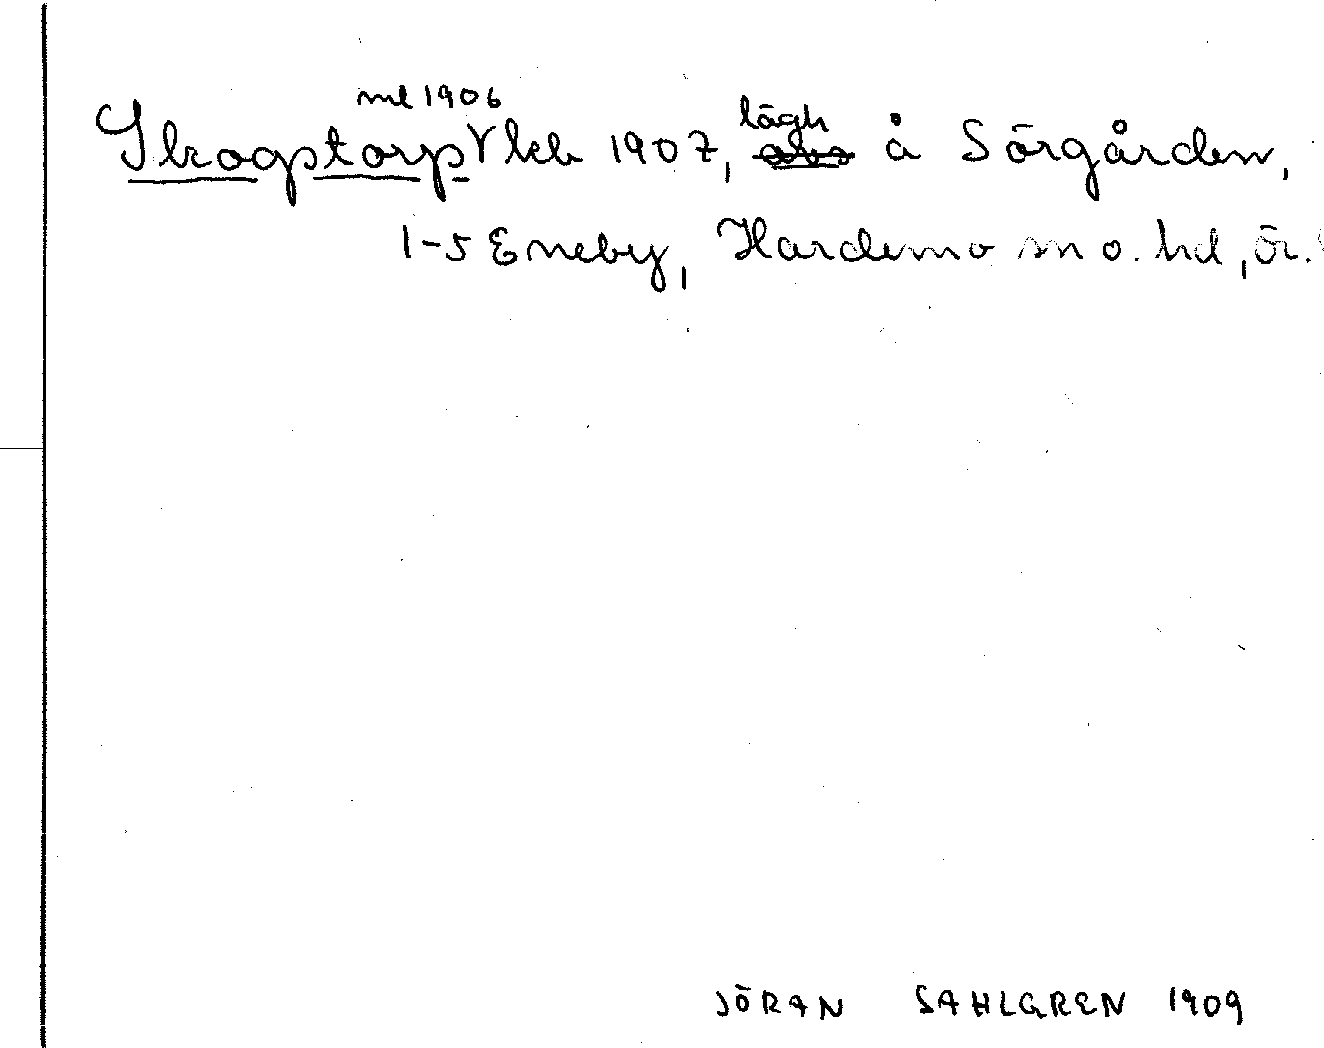 ml 1906
Skogstorp kb 1907, lägh å Sörgården,
1-5 Eneby, Hardemo sn o. hd, ör.
JÖRAN SAHLGREN 1909